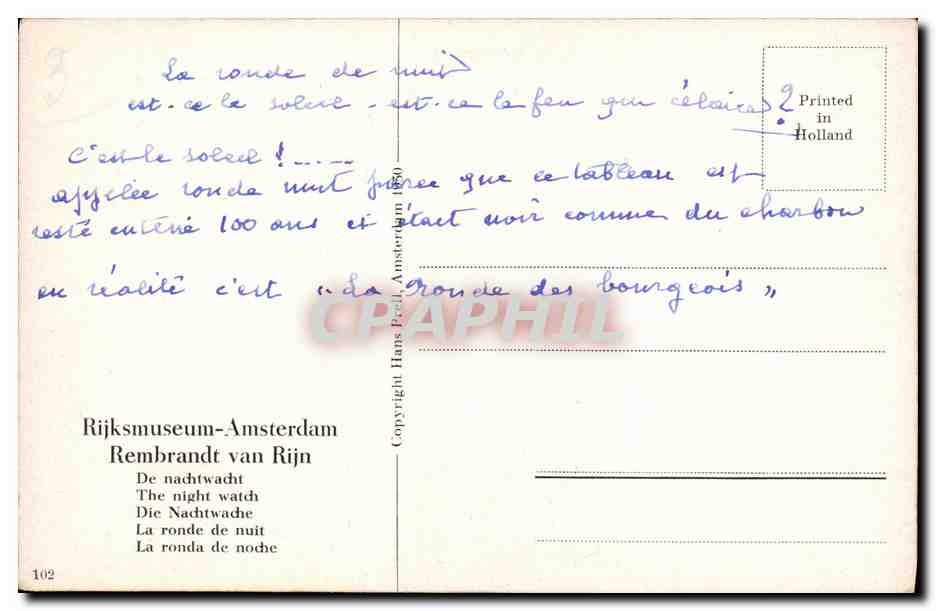 3
La ronde de nuit
est-ce le soleil - est-ce le feu qui éclaire ?
C'est le soleil !.....
appelée ronde nuit parce que ce tableau est
resté enterré 100 ans et était noir comme du charbon
en réalité c'est "La Ronde des bourgeois"
Printed
in
Holland
Copyright Hans Prell, Amsterdam 1950
CPAPHIL
Rijksmuseum-Amsterdam
Rembrandt van Rijn
De nachtwacht
The night watch
Die Nachtwache
La ronde de nuit
La ronda de noche
102